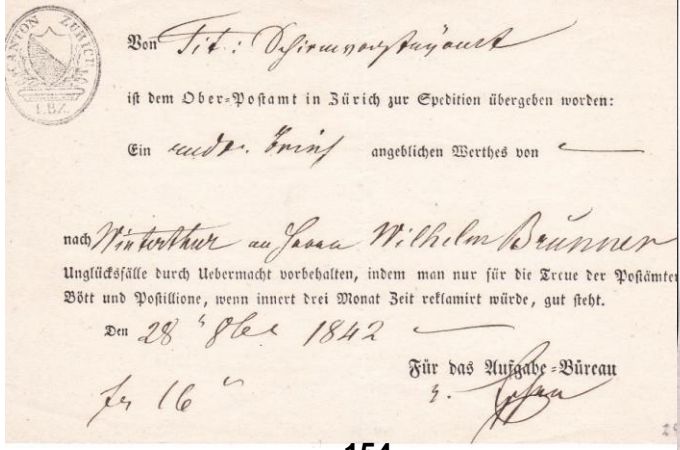 KANTON ZÜRICH
1.BZ.
Von Tit:
ist dem Ober-Postamt in Zürich zur Spedition übergeben worden:
Ein angeblichen Werthes von —
nach Winterthur an Herrn Wilhelm Brunner
Unglücksfälle durch Uebermacht vorbehalten, indem man nur für die Treue der Postämter
Bött und Postillione, wenn innert drei Monat Zeit reklamirt würde, gut steht.
Den 28 8be 1842 —
Für das Aufgabe-Büreau
fr 16
154